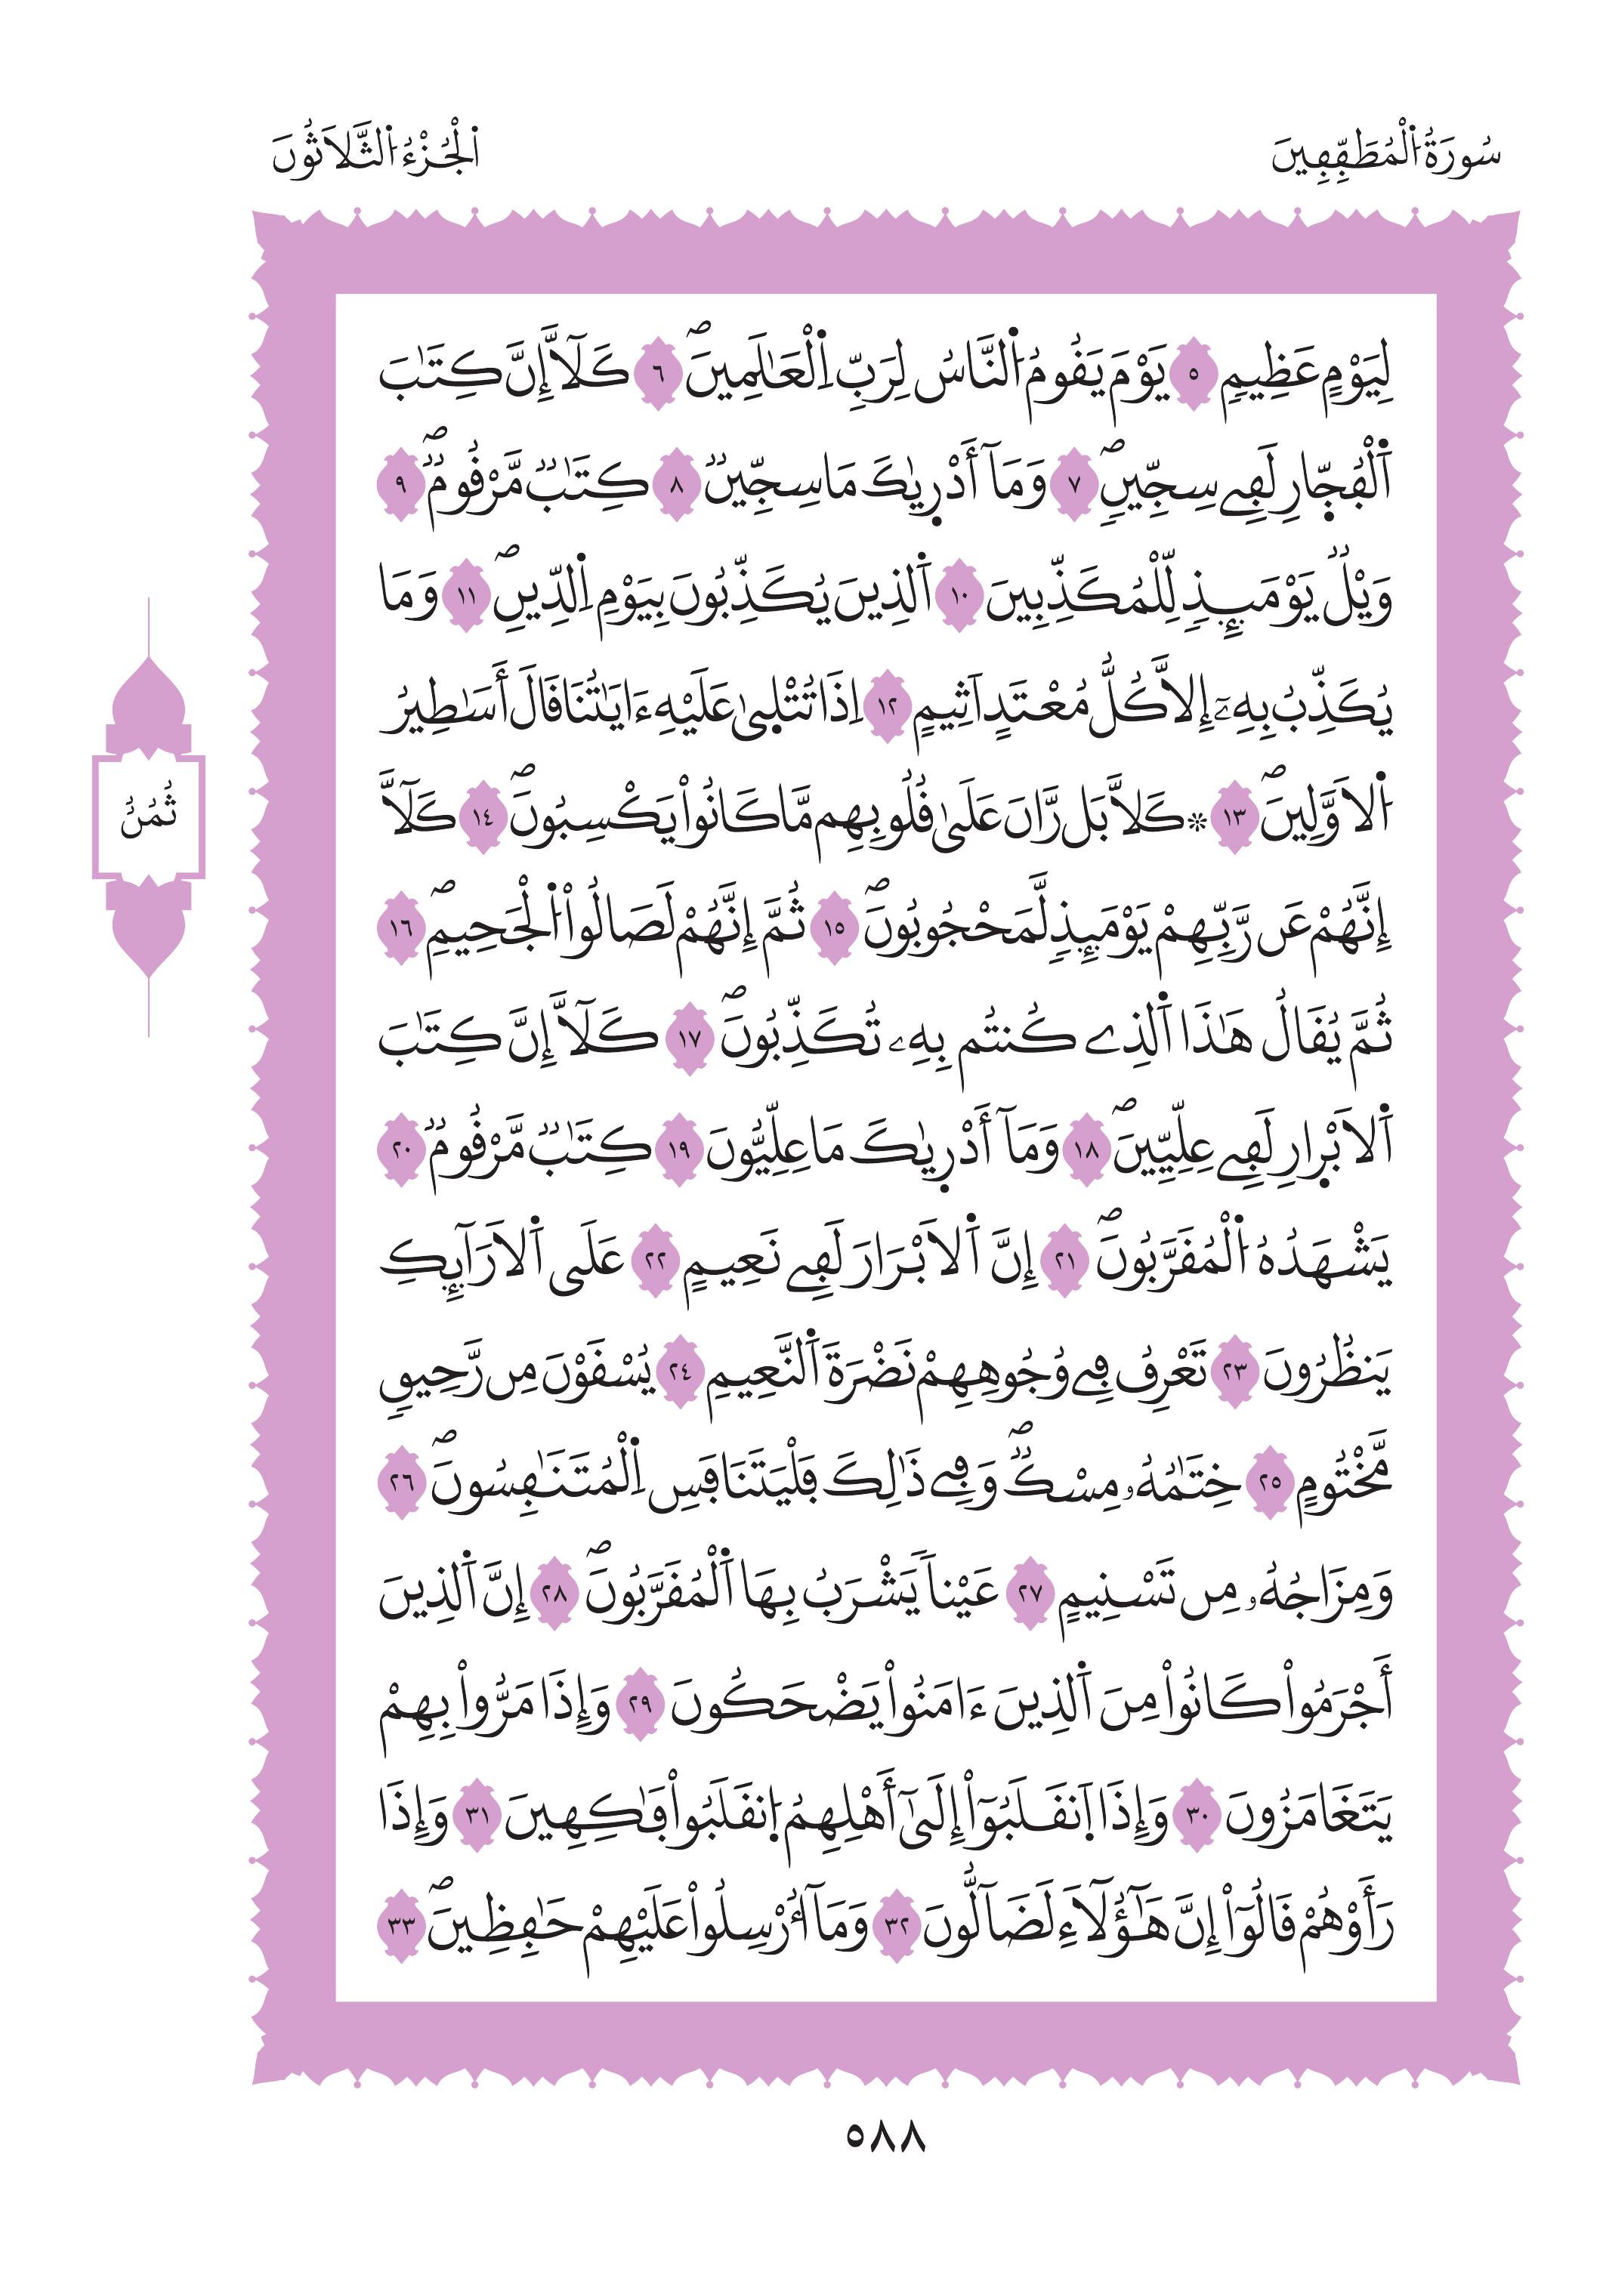 سُورَةُ اُ۬لْمُطَفِّفِينَ
اَ۬لْجُزْءُ اُ۬لثَّلَاثُونَ
لِيَوْمٍ عَظِيمٖ ٥ يَوْمَ يَقُومُ اُ۬لنَّاسُ لِرَبِّ اِ۬لْعَٰلَمِينَۖ ٦ كَلَّآ إِنَّ كِتَٰبَ
اَ۬لْفُجّ۪ارِ لَفِے سِجِّينٖۖ ٧ وَمَآ أَدْر۪يٰكَ مَا سِجِّينٞ ٨ كِتَٰبٞ مَّرْقُومٞۖ ٩
وَيْلٞ يَوْمَئِذٖ لِّلْمُكَذِّبِينَ ١٠ اَ۬لذِينَ يُكَذِّبُونَ بِيَوْمِ اِ۬لدِّينِۖ ١١ وَمَا
يُكَذِّبُ بِهِۦٓ إِلَّا كُلُّ مُعْتَدٍ اَثِيمٍ ١٢ اِذَا تُتْل۪يٰ عَلَيْهِ ءَايَٰتُنَا قَالَ أَسَٰطِيرُ
اُ۬لَاوَّلِينَۖ ١٣ ۞ كَلَّا بَل رَّانَ عَلَىٰ قُلُوبِهِم مَّا كَانُواْ يَكْسِبُونَۖ ١٤ كَلَّآ
إِنَّهُمْ عَن رَّبِّهِمْ يَوْمَئِذٖ لَّمَحْجُوبُونَۖ ١٥ ثُمَّ إِنَّهُمْ لَصَالُواْ اُ۬لْجَحِيمِۖ ١٦
ثُمَّ يُقَالُ هَٰذَا اَ۬لذِے كُنتُم بِهِۦ تُكَذِّبُونَۖ ١٧ كَلَّآ إِنَّ كِتَٰبَ
اَ۬لَابْر۪ارِ لَفِے عِلِّيِّينَۖ ١٨ وَمَآ أَدْر۪يٰكَ مَا عِلِّيُّونَ ١٩ كِتَٰبٞ مَّرْقُومٞ ٢٠
يَشْهَدُهُ اُ۬لْمُقَرَّبُونَۖ ٢١ إِنَّ اَ۬لَابْرَارَ لَفِے نَعِيمٍ ٢٢ عَلَى اَ۬لَارَآئِكِ
يَنظُرُونَ ٢٣ تَعْرِفُ فِے وُجُوهِهِمْ نَضْرَةَ اَ۬لنَّعِيمِ ٢٤ يُسْقَوْنَ مِن رَّحِيقٖ
مَّخْتُومٍ ٢٥ خِتَٰمُهُۥ مِسْكٞۖ وَفِے ذَٰلِكَ فَلْيَتَنَافَسِ اِ۬لْمُتَنَٰفِسُونَۖ ٢٦
وَمِزَاجُهُۥ مِن تَسْنِيمٍ ٢٧ عَيْناٗ يَشْرَبُ بِهَا اَ۬لْمُقَرَّبُونَۖ ٢٨ إِنَّ اَ۬لذِينَ
أَجْرَمُواْ كَانُواْ مِنَ اَ۬لذِينَ ءَامَنُواْ يَضْحَكُونَ ٢٩ وَإِذَا مَرُّواْ بِهِمْ
يَتَغَامَزُونَ ٣٠ وَإِذَا اَ۪نقَلَبُوٓاْ إِلَىٰٓ أَهْلِهِمُ اُ۪نقَلَبُواْ فَٰكِهِينَ ٣١ وَإِذَا
رَأَوْهُمْ قَالُوٓاْ إِنَّ هَٰٓؤُلَآءِ لَضَآلُّونَ ٣٢ وَمَآ أُرْسِلُواْ عَلَيْهِمْ حَٰفِظِينَۖ ٣٣
ثُمُنُ
٥٨٨